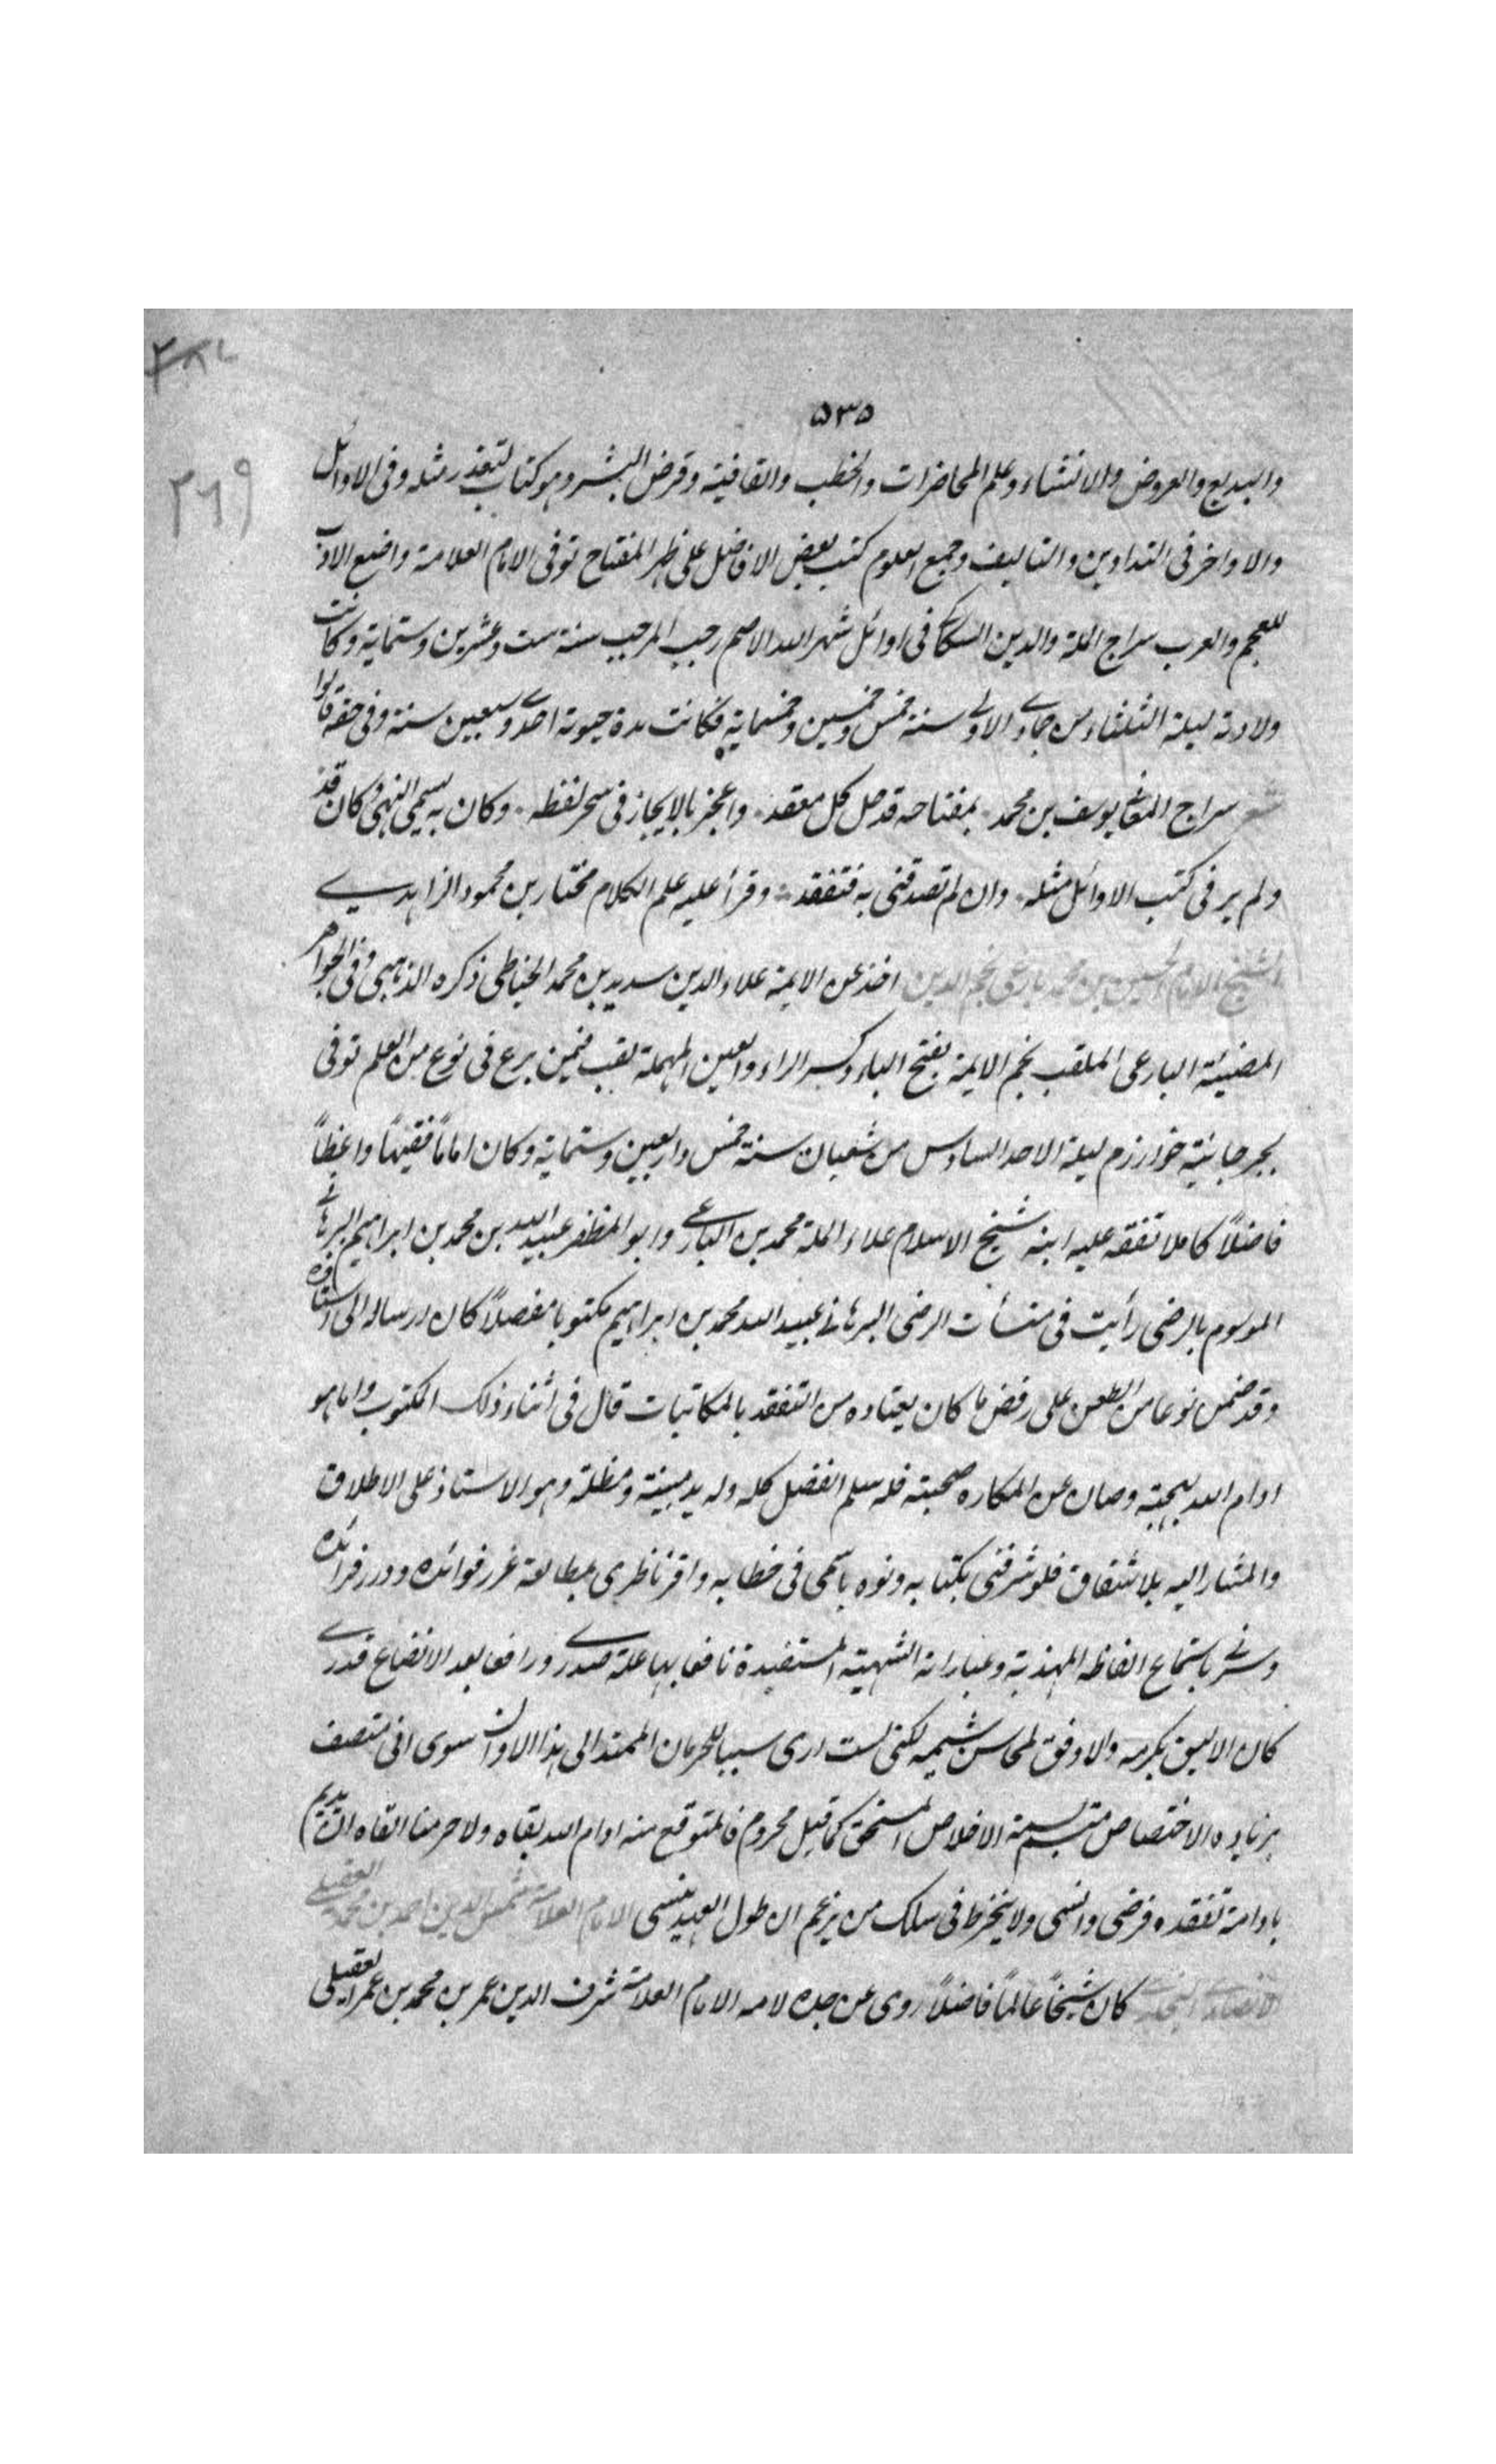 ٥٣٥
٢٦٩
والبديع والعروض والانتشاء وعلم المحاضرات والخطب والقافية وقرض البشر وهو كتاب لتعذر مثله وفى الاوائل
والاواخر فى التداوين والتاليف وجميع العلوم كتب بعض الافاضل على ظهر المفتاح توفى الامام العلامة واضع الادب
للعجم والعرب سراج الملة والدين السكاكى فى اوائل شهر الله الاصم رجب المرجب سنة ست وعشرين وستماية وكانت
ولادته ليلة الثلثاء من جمادى الاولى سنة خمس وخمسين وخمسماية فكانت مدة حيوته احدى وسبعين سنة وفى حقه قالوا
شعر سراج المعانى يوسف بن محمد بمفتاحه قد حل كل معقد واعجز بالايجاز فى سحر لفظه وكان به يحمى النهى وكان قد
ولم ير فى كتب الاوائل مثله وان لم تصدقنى به فتفقد وقرأ عليه علم الكلام مختار بن محمود الزاهدى
الشيخ الامام الحسين بن محمد بارعى نجم الدين اخذ عن الايمة علاء الدين سديد بن محمد الخياطى ذكره الذهبى وفى الجواهر
المضيئة البارعى الملقب نجم الايمة بفتح الباء وكسر الراء والعين المهملة لقب فيمن برع فى نوع من العلم توفى
بجرجانية خوارزم ليلة الاحد السادس من شعبان سنة خمس واربعين وستماية وكان اماماً فقيهاً واعظاً
فاضلاً كاملا تفقه عليه ابنه شيخ الاسلام علاء الملة محمد بن البارعى وابو المظفر عبيد الله بن محمد بن ابراهيم البرهانى
الموسوم بالرضى رأيت فى منشأت الرضى البرهانى عبيد الله محمد بن ابراهيم مكتوبا مفصلاً كان ارساله الى استاذه
وقد ضمن نوعا من الطعن على رفض ما كان يعتاده من التفقد بالمكاتبات قال فى اثناء ذلك المكتوب واما هو
ادام الله بهجته وصان عن المكاره صحبته فله سلم الفضل كله وله يد مبينة ومظلة وهو الاستاذ على الاطلاق
والمشار اليه بلا شقاق فلو شرفنى بكتابه ونوه باسمى فى خطابه واقر ناظرى بمطالعة غرر فوائده ودرر فرائده
وسرنى باستماع الفاظه المهذبة وعباراته الشهية المستفيدة نافعا بها علة صدرى ورافعا بعد الاتضاع قدرى
كان الاليق بكرمه والاوفق لمحاسن شيمه لكنى لست ارى سببا للحرمان الممتد الى هذا الاوان سوى انى متصف
بزيادة الاختصاص متسم بسمة الاخلاص المستحق كما قيل محروم فالمتوقع منه ادام الله بقاه ولا حرمنا القاه ان يديم
بادامة تفقده فرضى وانسى ولا ينخرط فى سلك من يزعم ان طول العهد ينسى الامام العلامة شمس الدين احمد بن محمد العقيلى
الانصارى البخارى كان شيخاً عالماً فاضلاً روى عن جده لامه الامام العلامة شرف الدين عمر بن محمد بن عمر العقيلى